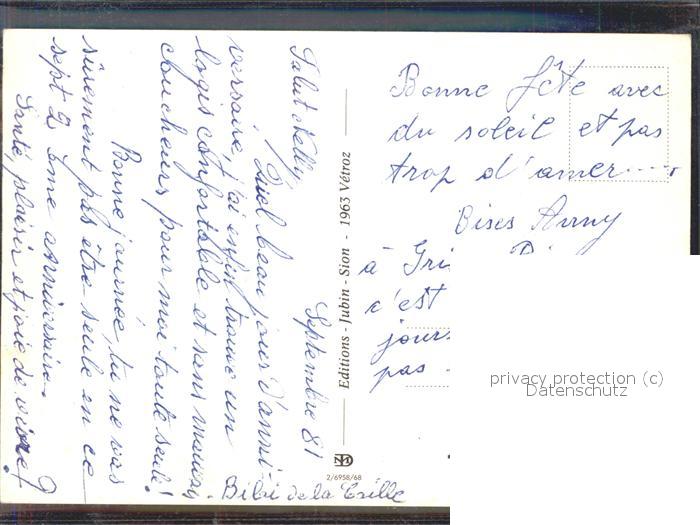 Septembre 81
Salut Nelly,
Quel beau jour d'anni-
versaire, j'ai enfin trouvé un
logis confortable et sans mauvay
coucheurs pour moi toute seule!
Bonne journée, tu ne vas
sûrement pas être seule en ce
sept 2 ème anniversaire.
Santé, plaisir et joie de vivre!
Bibi de la
Editions - Jubin - Sion - 1963 Vétroz
2/6958/68
Bonne fête avec
du soleil et pas
trop d'amer....
Bises Anny
à Gri
c'est
jours
pas
privacy protection (c)
Datenschutz